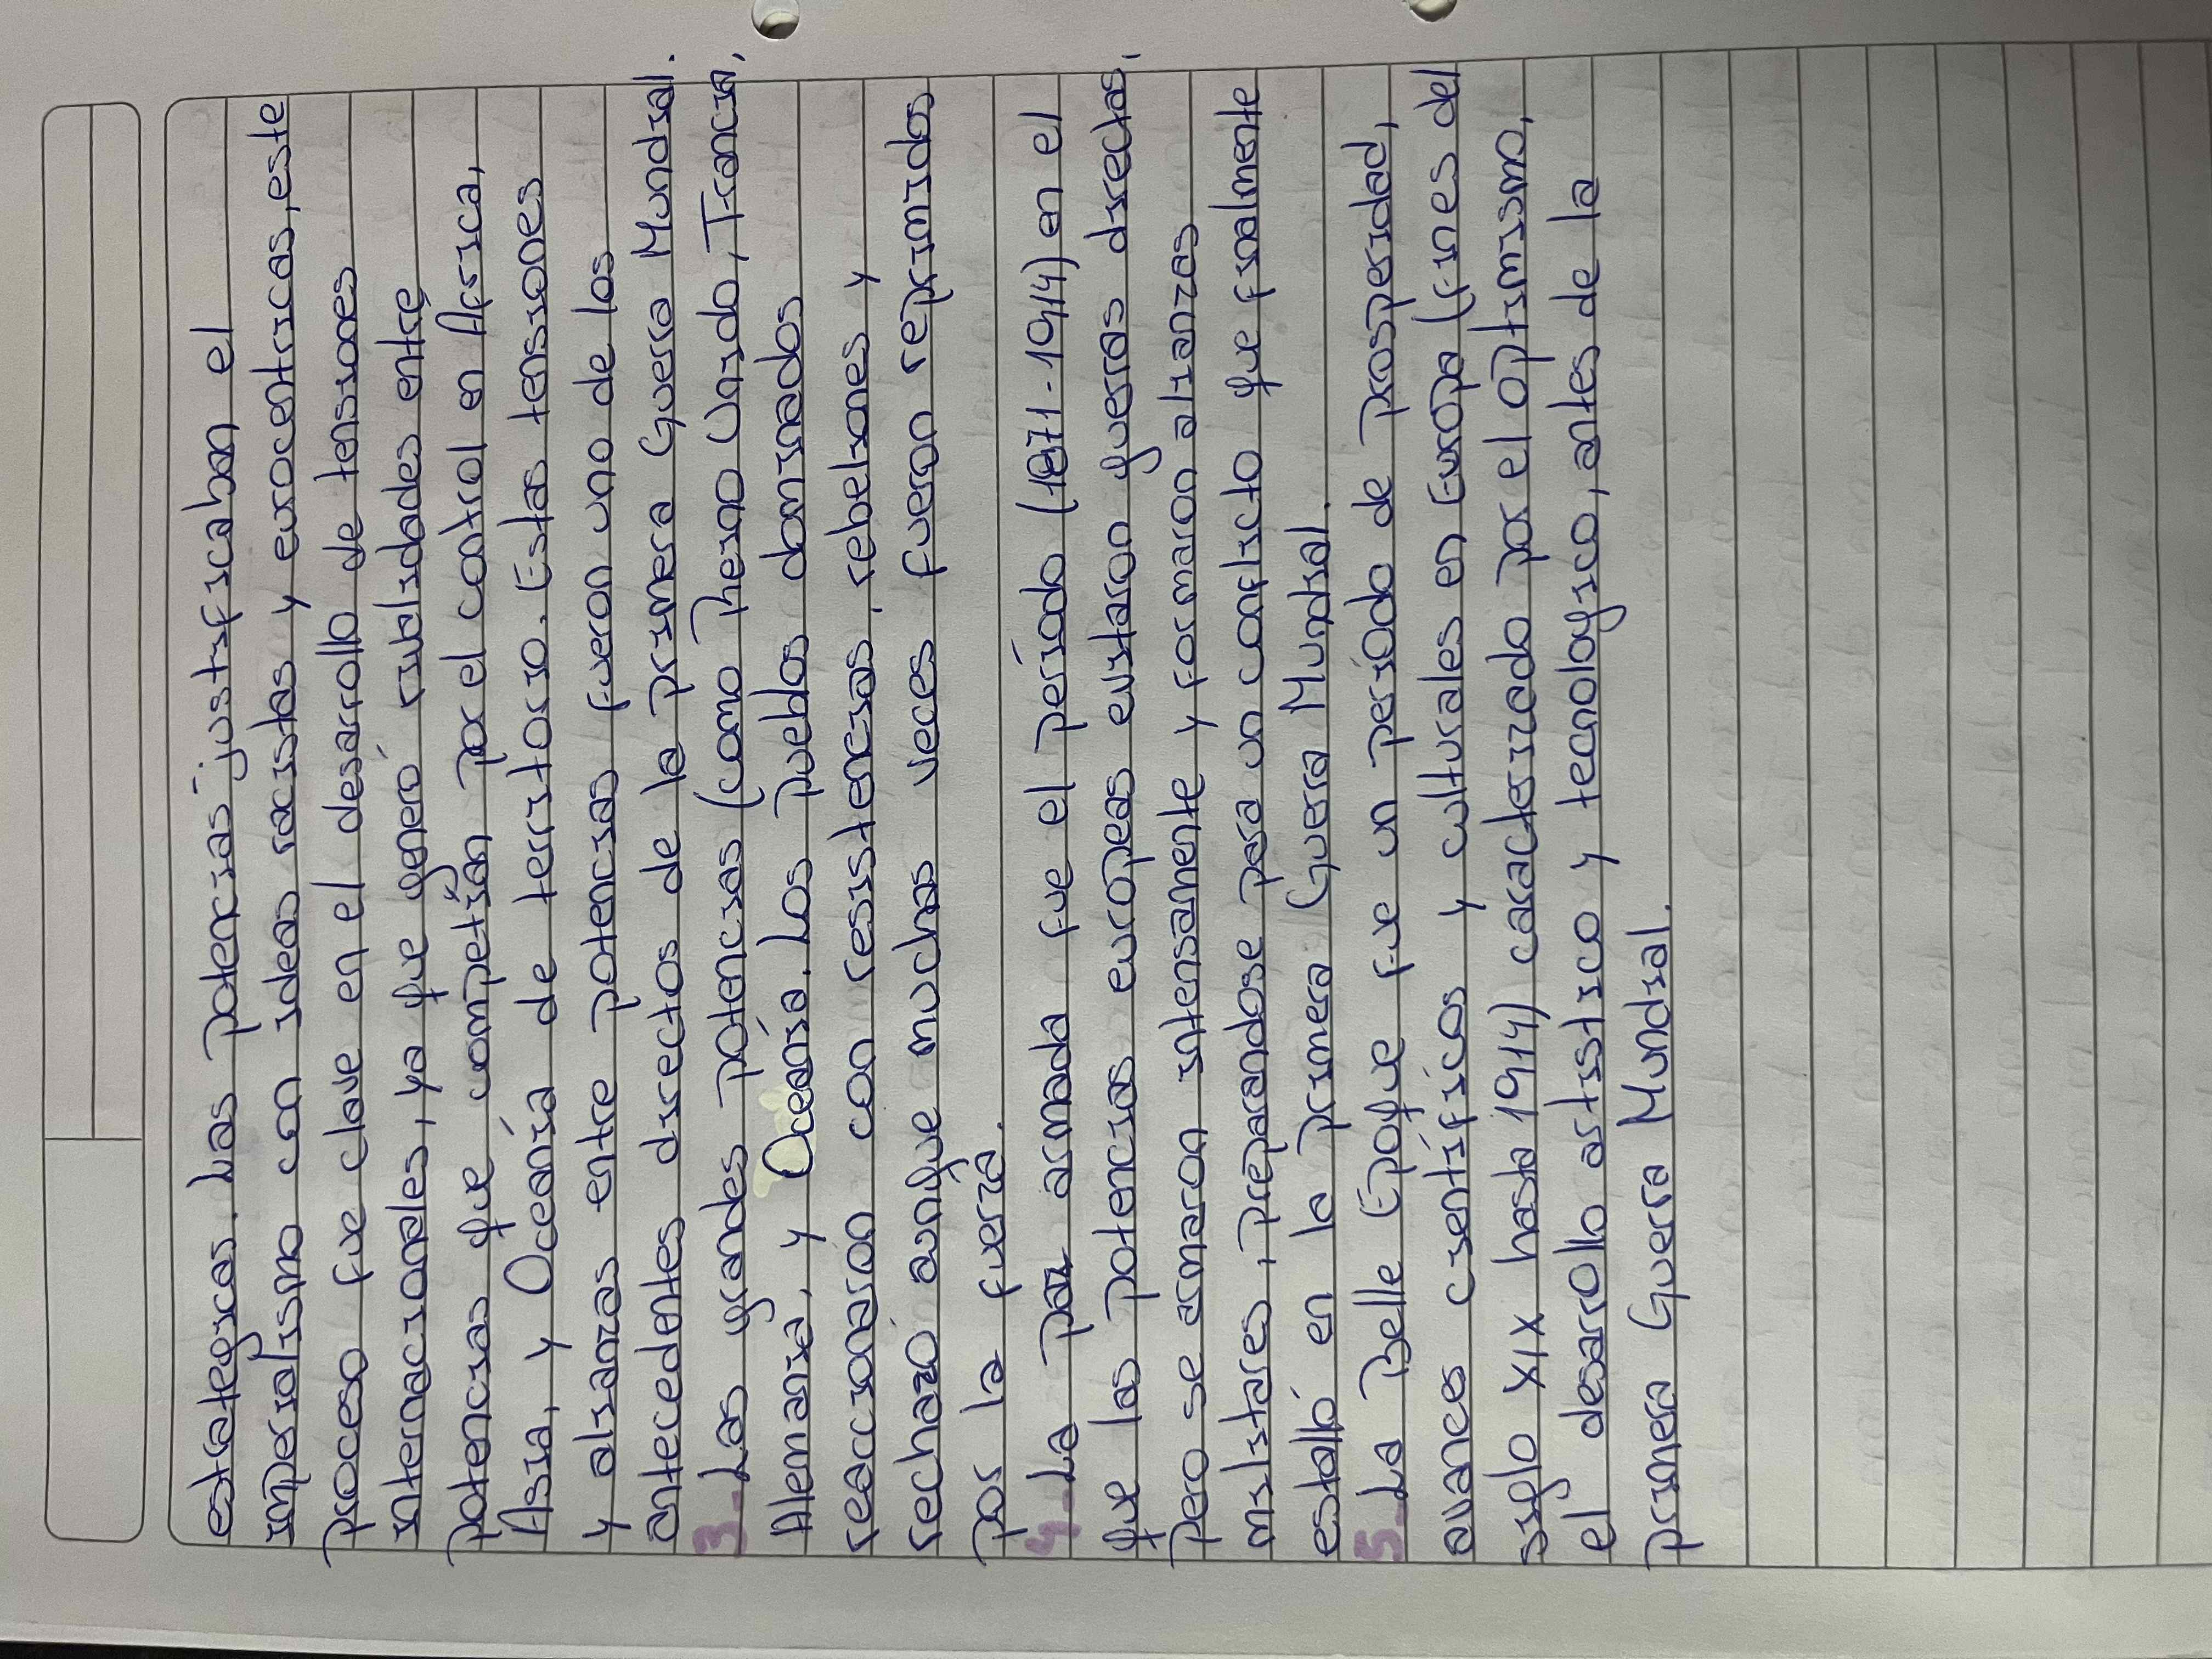 estrategicas. Las potencias justificaban el
imperialismo con ideas racistas y eurocentricas, este
proceso fue clave en el desarrollo de tensiones
internacionales, ya que generó rivalidades entre
potencias que competían por el control en Africa,
Asia, y Oceanía de territorio. Estas tensiones
y alianzas entre potencias fueron uno de los
antecedentes directos de la primera Guerra Mundial.
3_Las grandes potencias (como Reino Unido, Francia,
Alemania, y Oceanía. Los pueblos dominados
reaccionarón con resistencias, rebeliones y
rechazó aunque muchas veces fueron reprimidos
por la fuerza.
4_La paz armada fue el período (1871-1914) en el
que las potencias europeas evitaron guerras directas,
pero se armaron intensamente y formaron alianzas
militares, preparandose para un conflicto que finalmente
estalló en la primera Guerra Mundial.
5_La Belle Epoque fue un período de prosperidad,
avances científicos y culturales en Europa (fines del
siglo XIX hasta 1914) caracterizado por el optimismo,
el desarrollo artístico y tecnologico, antes de la
primera Guerra Mundial.